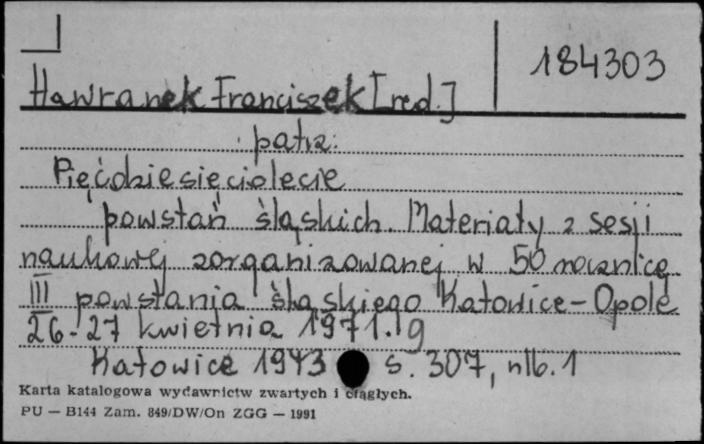 184303
Hawranek Franciszek [red.]
patrz:
Pięćdziesięciolecie
powstań śląskich. Materiały z sesji
naukowej zorganizowanej w 50 rocznicę
III powstania śląskiego Katowice-Opole
26-27 kwietnia 1971.g
Katowice 1973 s. 307, nlb. 1
Karta katalogowa wydawnictw zwartych i ciągłych.
PU — B144 Zam. 849/DW/On ZGG — 1991